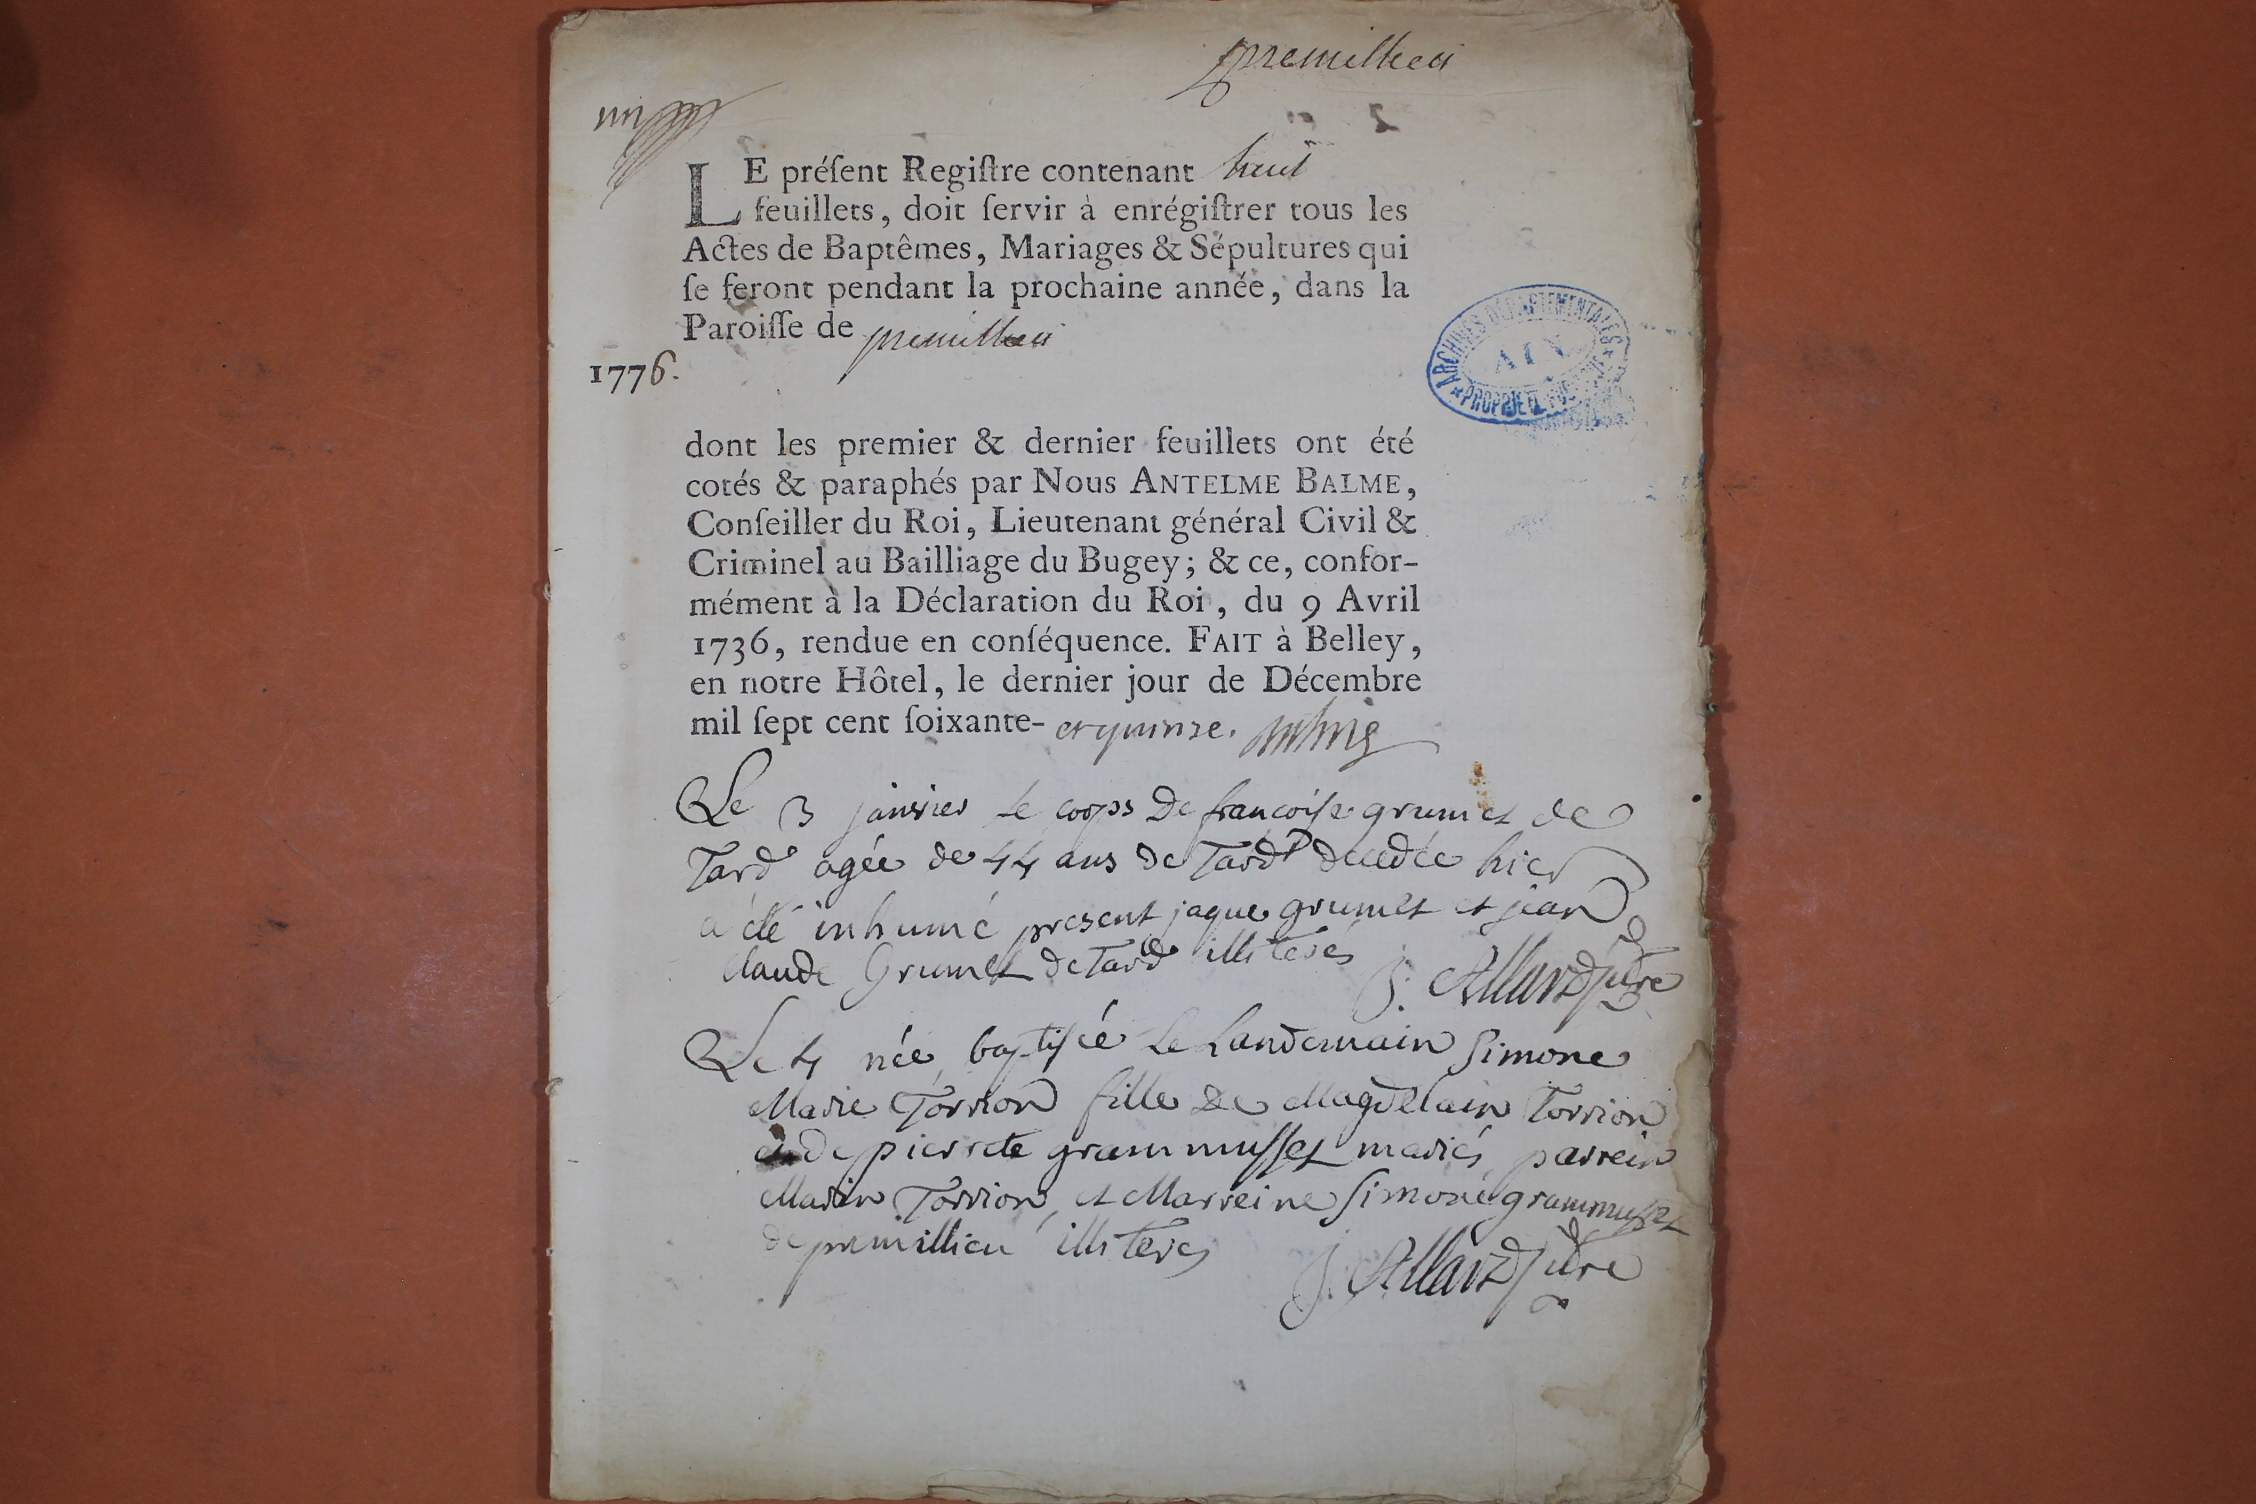 premillieu
LE préſent Regiſtre contenant huit
feuillets, doit ſervir à enrégiſtrer tous les
Actes de Baptêmes, Mariages & Sépultures qui
ſe feront pendant la prochaine année, dans la
Paroiſſe de premillieu
1776.
ARCHIVES DÉPARTEMENTALES
AIN
dont les premier & dernier feuillets ont été
cotés & paraphés par Nous ANTELME BALME,
Conſeiller du Roi, Lieutenant général Civil &
Criminel au Bailliage du Bugey; & ce, confor-
mément à la Déclaration du Roi, du 9 Avril
1736, rendue en conſéquence. FAIT à Belley,
en notre Hôtel, le dernier jour de Décembre
mil ſept cent ſoixante- et quinze.
Le 3 janvier le corps de françoise grumet de
Tard agée de 44 ans de Tard decedée hier
a été inhumé present jaque grumet et jean
claude Grumet de Tard illiterés
J. Allard curé
Le 4 née baptisée le Landemain Simone
Marie Torrion fille de Magdelain Torrion
et de pierrete grammusset mariés parrein
Marin Torrion et Marreine Simone grammusset
de premillieu illiteres
J. Allard curé